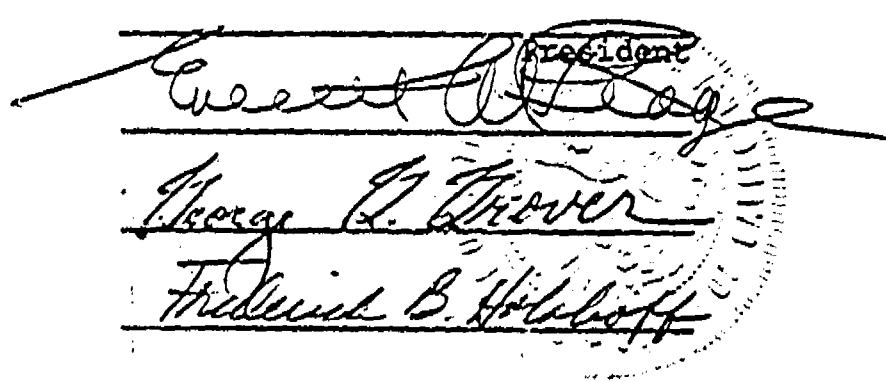 President
Everett
George G. Grover
Frederick B. Holoboff